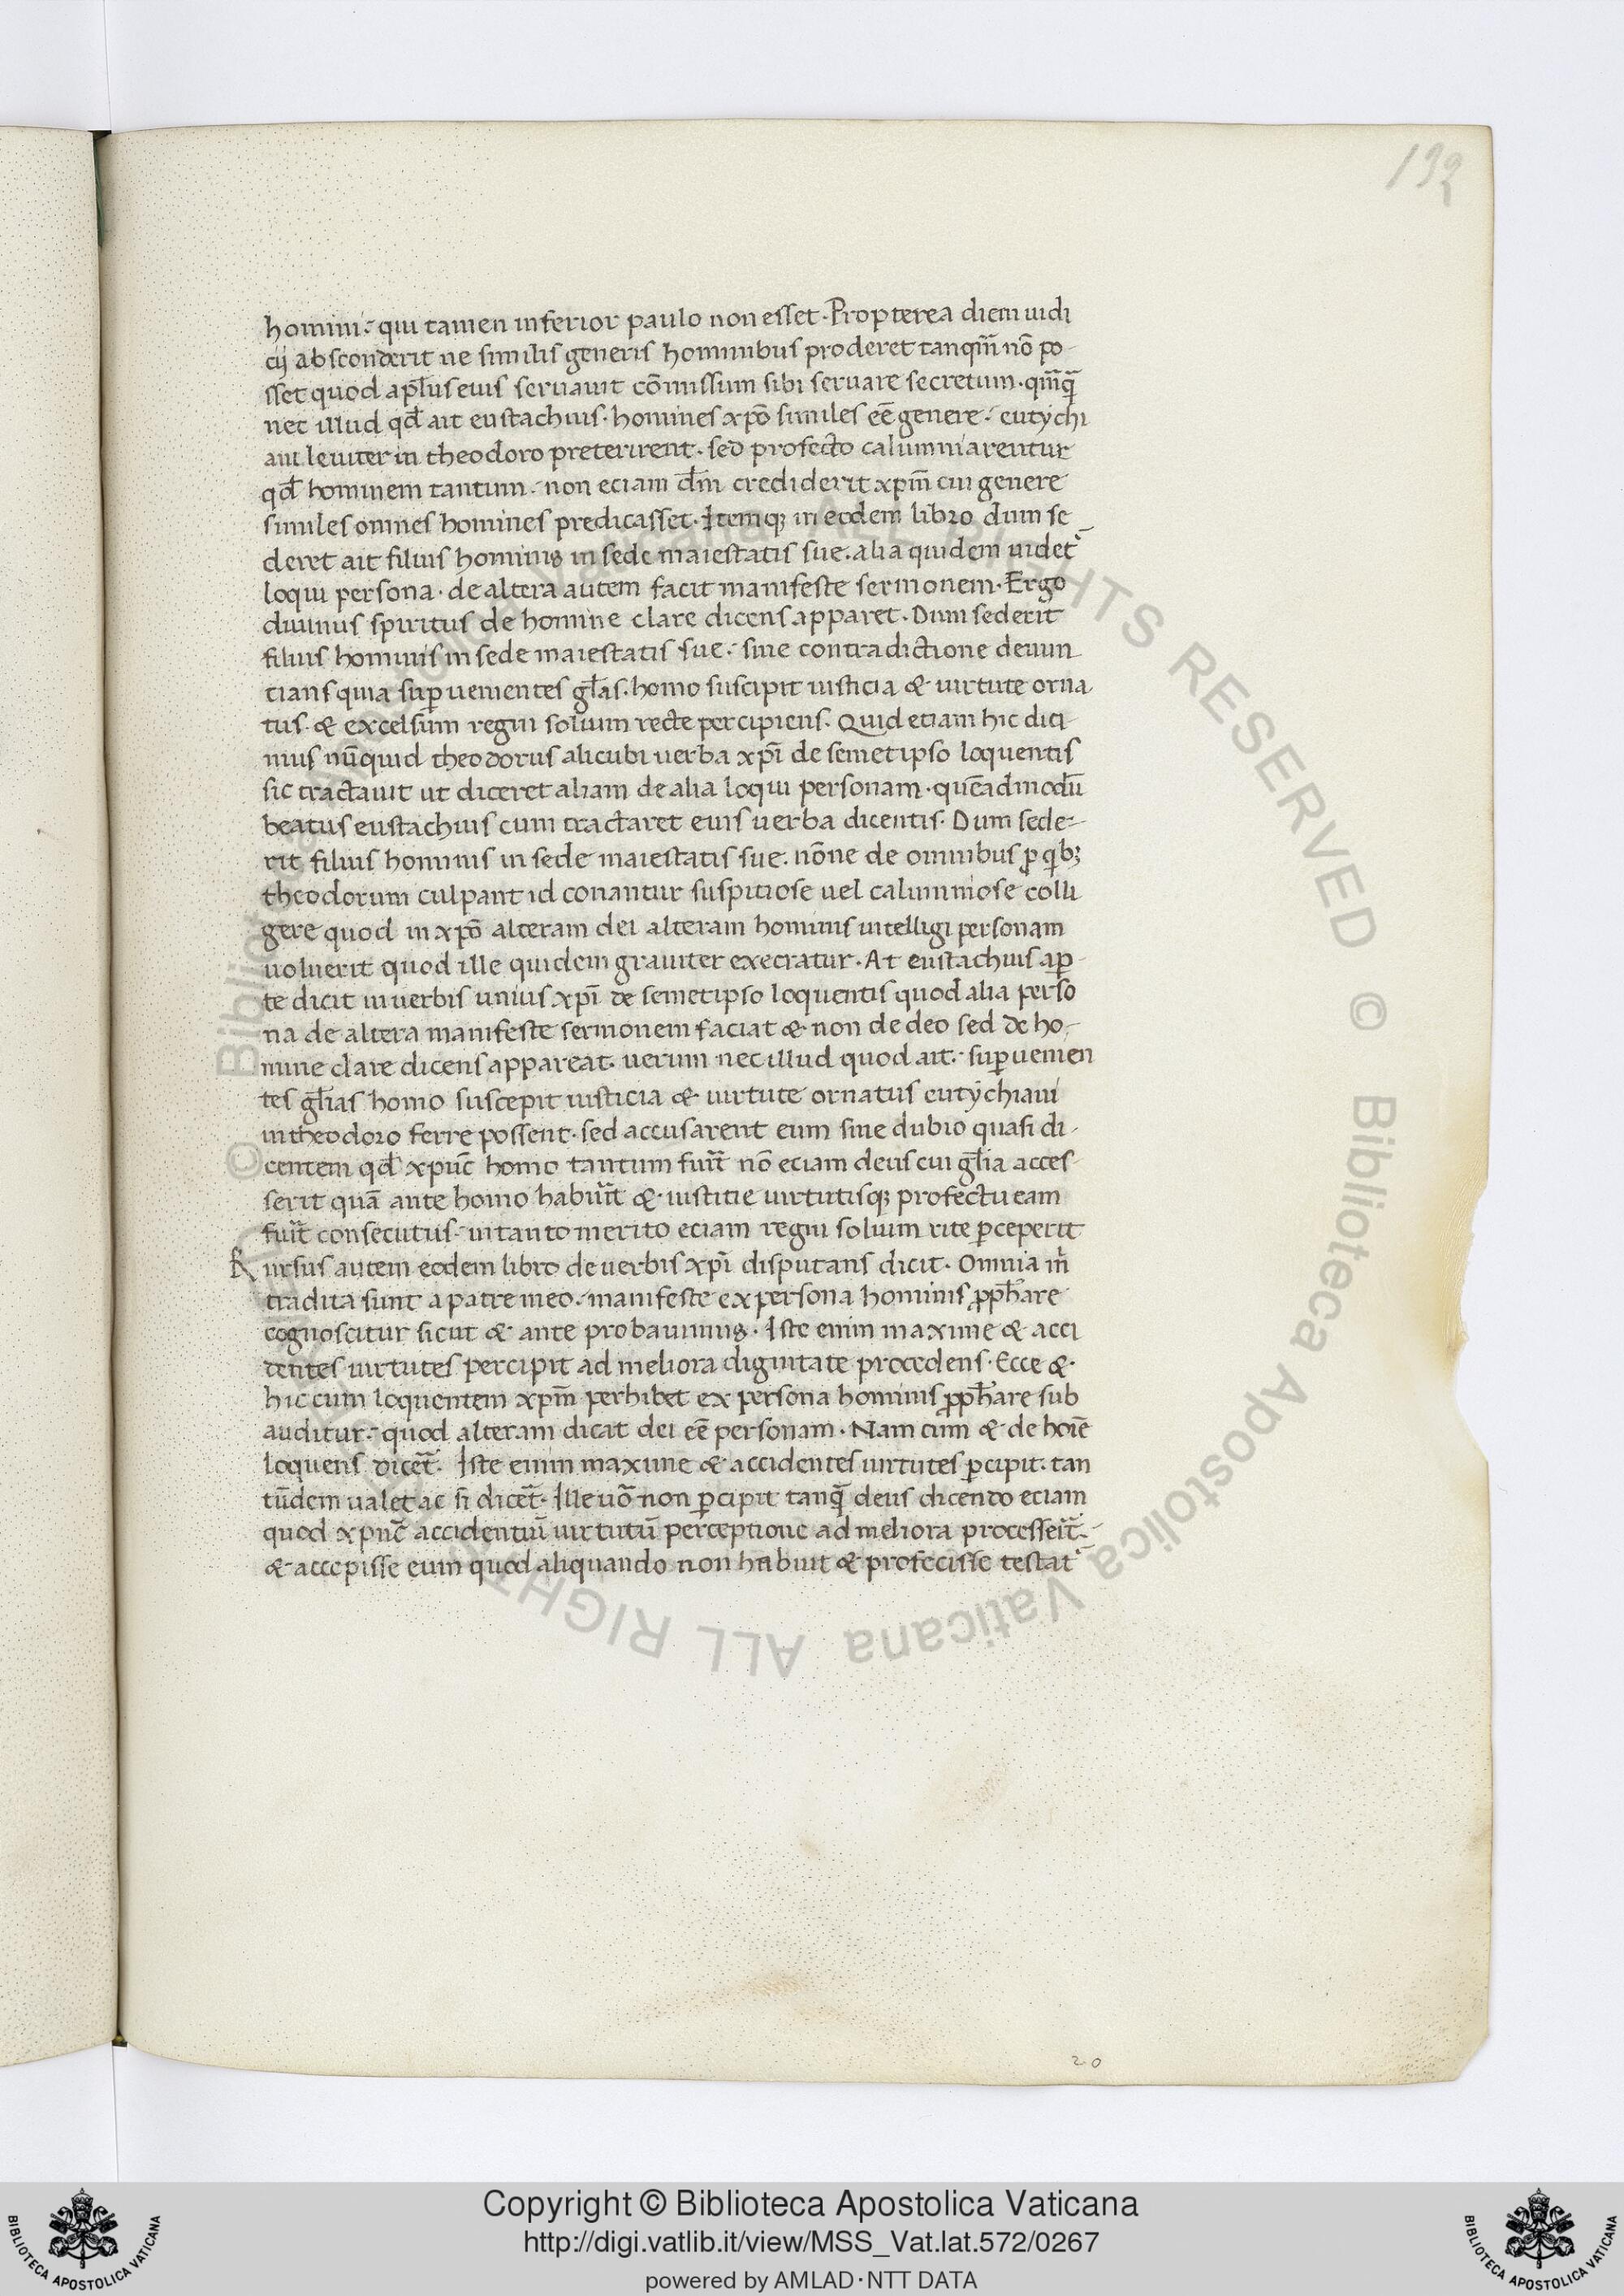 132
homini· qui tamen inferior paulo non esset· Propterea diem iudi
cij absconderit ne similis generis hominibus proderet tanqm̄ nō po
sset quod apl̄us eius seruauit cōmissum sibi seruare secretum· qm̄q̄
nec illud qd̄ ait eustachius· homines xp̄o similes eē genere· eutychi
ani leuiter in theodoro preterirent· sed profecto calumniarentur
qd̄ hominem tantum· non eciam dm̄ crediderit xpm̄ cui genere
similes omnes homines predicasset· Itemq; in eodem libro dum se
deret ait filius hominis in sede maiestatis sue· alia quidem uidet᷑
loqui persona· de altera autem facit manifeste sermonem· Ergo
diuinus spiritus de homine clare dicens apparet· Dum sederit
filius hominis in sede maiestatis sue· sine contradictione denun
cians quia suꝑuenientes gl̄as· homo suscipit iusticia & uirtute orna
tus· & excelsum regni solium recte percipiens· Quid etiam hic dici
mus nūquid theodorus alicubi uerba xp̄i de semetipso loquentis
sic tractauit ut diceret aliam de alia loqui personam· quēadmodū
beatus eustachius cum tractaret eius uerba dicentis· Dum sede-
rit filius hominis in sede maiestatis sue· nōne de omnibus ꝓ qib;
theodorum culpant id conantur suspitiose uel calumniose colli
gere quod in xp̄o alteram dei alteram hominis intelligi personam
uoluerit quod ille quidem grauiter execratur· At eustachius aꝑ-
te dicit in uerbis unius xp̄i de semetipso loquentis quod alia perso
na de altera manifeste sermonem faciat & non de deo sed de ho-
mine clare dicens appareat· uerum nec illud quod ait· suꝑuenien
tes gl̄ias homo suscepit iusticia & uirtute ornatus eutychiani
in theodoro ferre possent· sed accusarent eum sine dubio quasi di-
centem qd̄ xpūc homo tantum fuīt nō eciam deus cui gl̄ia acces-
serit quā ante homo habuīt & iustitie uirtutisq; profectu eam
fuīt consecutus· in tanto merito eciam regni solium rite ꝑceperit
Rursus autem eodem libro de uerbis xp̄i disputans dicit· Omnia m̄
tradita sunt a patre meo· manifeste ex persona hominis ꝓph̄are
cognoscitur sicut & ante probauimus· Iste enim maxime & acci
dentes uirtutes percipit ad meliora dignitate procedens· Ecce &
hic cum loquentem xpm̄ perhibet ex persona hominis ꝓph̄are sub
auditur· quod alteram dicat dei eē personam· Nam cum & de hoīe
loquens dicet̄· Iste enim maxime & accidentes uirtutes ꝑcipit· tan
tūdem ualet ac si dicet̄· Ille uō non ꝑcipit tanq̄ deus dicendo eciam
quod xpūc accidentiū uirtutū perceptione ad meliora processeīt·
& accepisse eum quod aliquando non habuit & profecisse testat᷑
20
© Biblioteca Apostolica Vaticana ALL RIGHTS RESERVED © Biblioteca Apostolica Vaticana ALL RIGHT
Copyright © Biblioteca Apostolica Vaticana
http://digi.vatlib.it/view/MSS_Vat.lat.572/0267
powered by AMLAD·NTT DATA
BIBLIOTECA APOSTOLICA VATICANA
BIBLIOTECA APOSTOLICA VATICANA